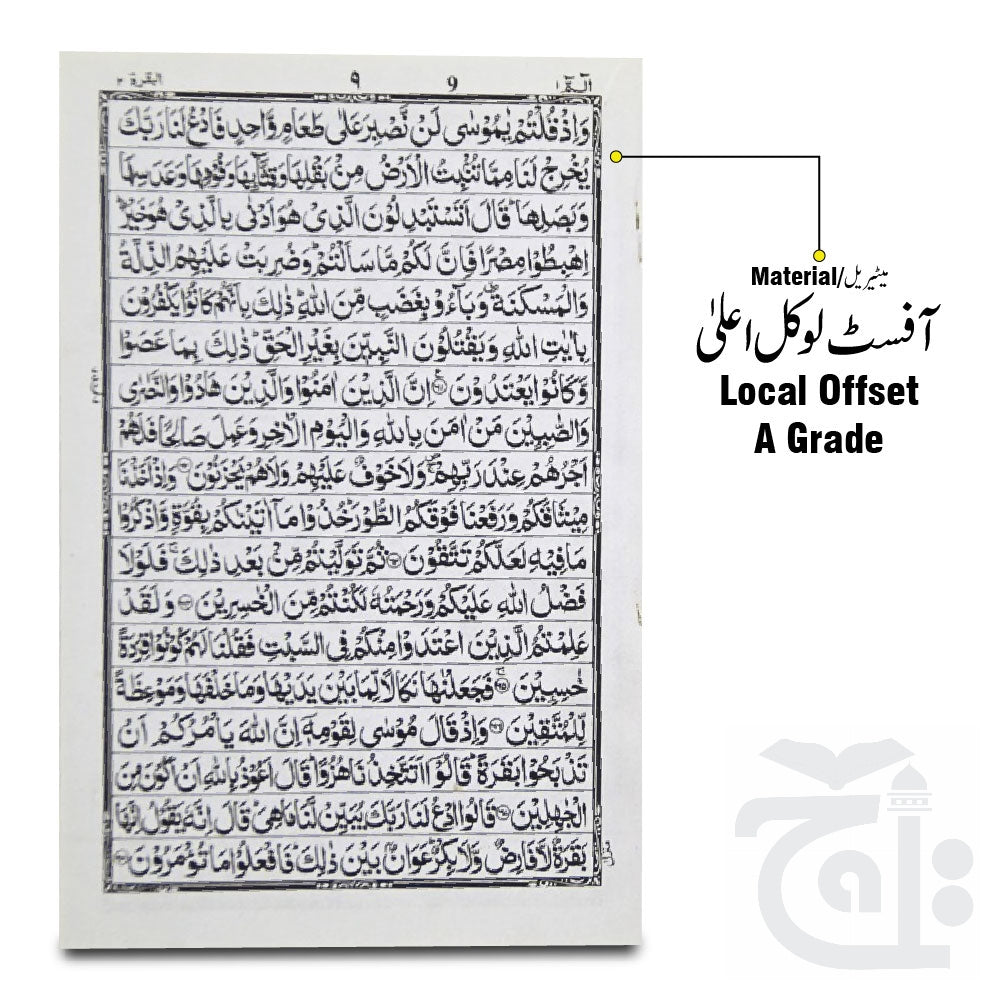 البقرة ٢ ٩ 9 الٓمّٓ ١
وَاِذۡ قُلۡتُمۡ يٰمُوۡسٰى لَنۡ نَّصۡبِرَ عَلٰى طَعَامٍ وَّاحِدٍ فَادۡعُ لَنَا رَبَّكَ
يُخۡرِجۡ لَنَا مِمَّا تُنۡۢبِتُ الۡاَرۡضُ مِنۡۢ بَقۡلِهَا وَقِثَّآئِهَا وَفُوۡمِهَا وَعَدَسِهَا
وَبَصَلِهَا ؕ قَالَ اَتَسۡتَبۡدِلُوۡنَ الَّذِىۡ هُوَ اَدۡنٰى بِالَّذِىۡ هُوَ خَيۡرٌ ؕ
اِهۡبِطُوۡا مِصۡرًا فَاِنَّ لَكُمۡ مَّا سَاَلۡتُمۡ ؕ وَضُرِبَتۡ عَلَيۡهِمُ الذِّلَّةُ
وَالۡمَسۡکَنَةُ وَبَآءُوۡ بِغَضَبٍ مِّنَ اللّٰهِ ؕ ذٰلِكَ بِاَنَّهُمۡ كَانُوۡا يَكۡفُرُوۡنَ
بِاٰيٰتِ اللّٰهِ وَيَقۡتُلُوۡنَ النَّبِيّٖنَ بِغَيۡرِ الۡحَقِّ ؕ ذٰلِكَ بِمَا عَصَوۡا
وَّكَانُوۡا يَعۡتَدُوۡنَ ﴿۶۱﴾ اِنَّ الَّذِيۡنَ اٰمَنُوۡا وَالَّذِيۡنَ هَادُوۡا وَالنَّصٰرٰى
وَالصّٰبِـِٕيۡنَ مَنۡ اٰمَنَ بِاللّٰهِ وَالۡيَوۡمِ الۡاٰخِرِ وَعَمِلَ صَالِحًا فَلَهُمۡ
اَجۡرُهُمۡ عِنۡدَ رَبِّهِمۡ ۚ وَلَا خَوۡفٌ عَلَيۡهِمۡ وَلَا هُمۡ يَحۡزَنُوۡنَ ﴿۶۲﴾ وَاِذۡ اَخَذۡنَا
مِيۡثَاقَكُمۡ وَرَفَعۡنَا فَوۡقَكُمُ الطُّوۡرَ ؕ خُذُوۡا مَآ اٰتَيۡنٰكُمۡ بِقُوَّةٍ وَّاذۡكُرُوۡا
مَا فِيۡهِ لَعَلَّكُمۡ تَتَّقُوۡنَ ﴿۶۳﴾ ثُمَّ تَوَلَّيۡتُمۡ مِّنۡۢ بَعۡدِ ذٰلِكَ ۚ فَلَوۡلَا
فَضۡلُ اللّٰهِ عَلَيۡكُمۡ وَرَحۡمَتُهٗ لَـكُنۡتُمۡ مِّنَ الۡخٰسِرِيۡنَ ﴿۶۴﴾ وَلَقَدۡ
عَلِمۡتُمُ الَّذِيۡنَ اعۡتَدَوۡا مِنۡكُمۡ فِى السَّبۡتِ فَقُلۡنَا لَهُمۡ كُوۡنُوۡا قِرَدَةً
خٰسِـِٕيۡنَ ﴿۶۵﴾ فَجَعَلۡنٰهَا نَكَالًا لِّمَا بَيۡنَ يَدَيۡهَا وَمَا خَلۡفَهَا وَمَوۡعِظَةً
لِّلۡمُتَّقِيۡنَ ﴿۶۶﴾ وَاِذۡ قَالَ مُوۡسٰى لِقَوۡمِهٖۤ اِنَّ اللّٰهَ يَاۡمُرُكُمۡ اَنۡ
تَذۡبَحُوۡا بَقَرَةً ؕ قَالُوۡٓا اَتَتَّخِذُنَا هُزُوًا ؕ قَالَ اَعُوۡذُ بِاللّٰهِ اَنۡ اَكُوۡنَ مِنَ
الۡجٰهِلِيۡنَ ﴿۶۷﴾ قَالُوا ادۡعُ لَنَا رَبَّكَ يُبَيِّنۡ لَّنَا مَا هِىَ ؕ قَالَ اِنَّهٗ يَقُوۡلُ اِنَّهَا
بَقَرَةٌ لَّا فَارِضٌ وَّلَا بِكۡرٌ ؕ عَوَانٌۢ بَيۡنَ ذٰلِكَ ؕ فَافۡعَلُوۡا مَا تُؤۡمَرُوۡنَ ﴿۶۸﴾
منزل
Material/میٹیریل
آفسٹ لوکل اعلیٰ
Local Offset
A Grade